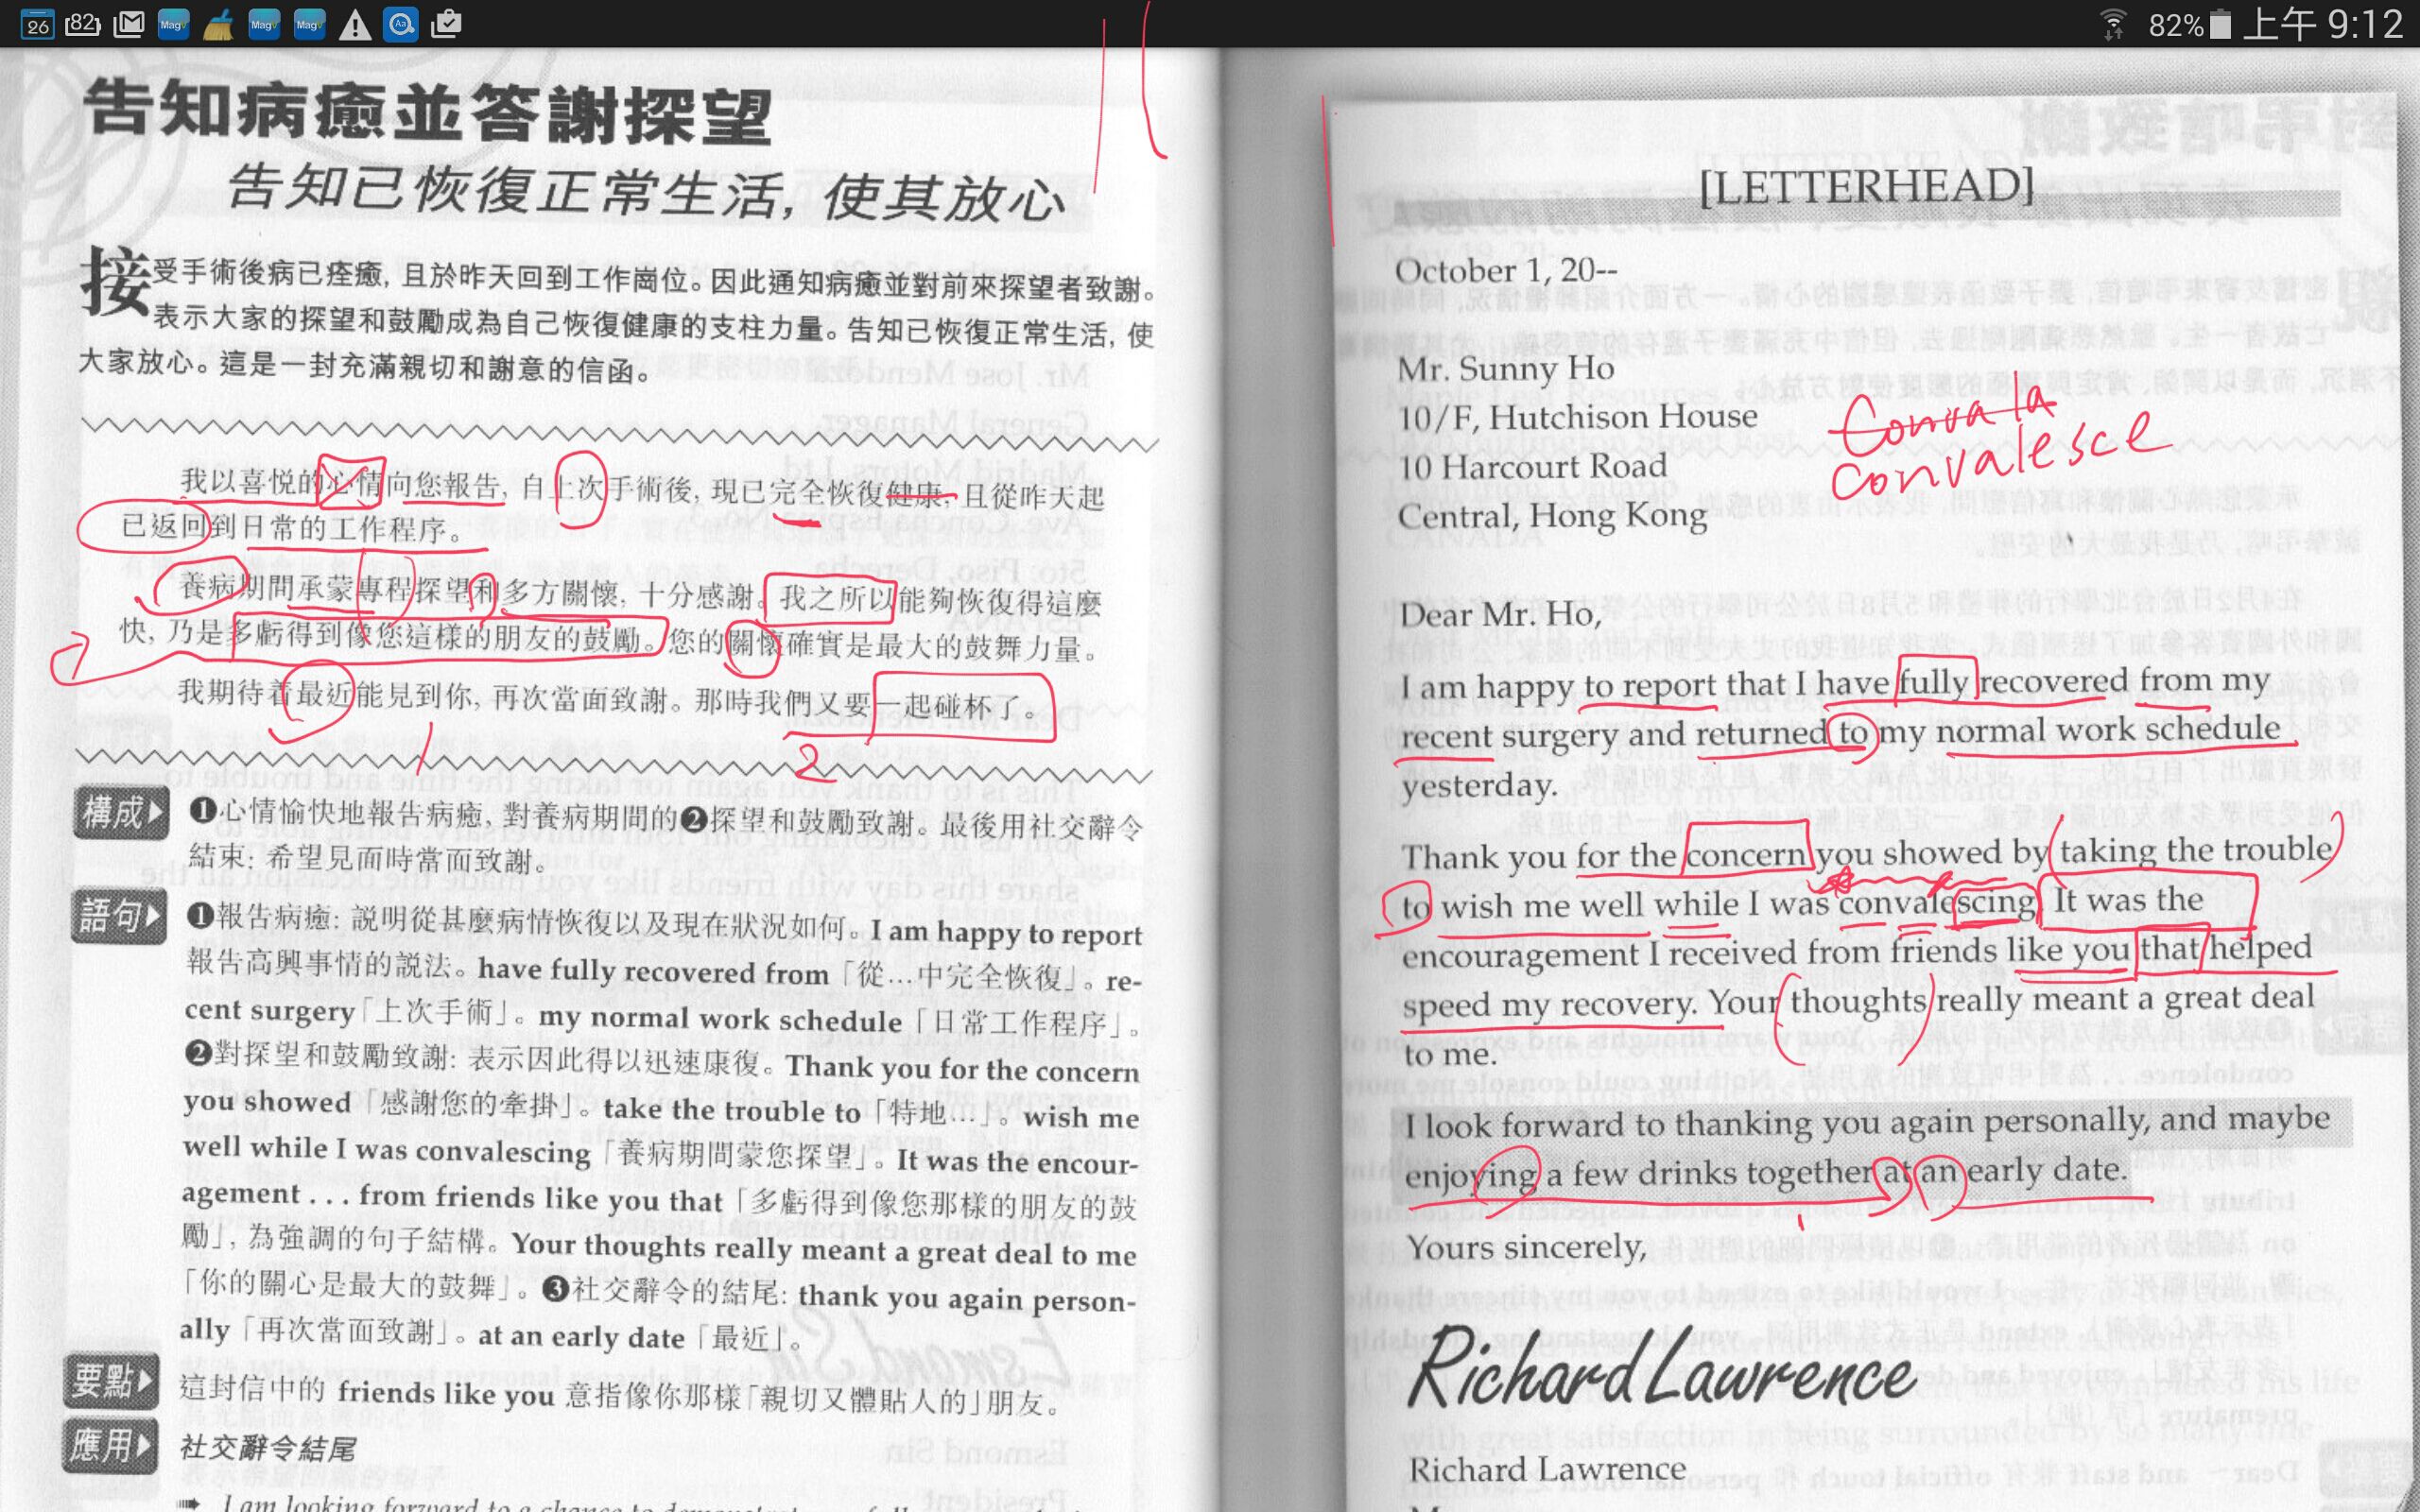 26 82 Mag Mag Mag 82% 上午 9:12
告知病癒並答謝探望
告知已恢復正常生活, 使其放心
接受手術後病已痊癒, 且於昨天回到工作崗位。因此通知病癒並對前來探望者致謝。
表示大家的探望和鼓勵成為自己恢復健康的支柱力量。告知已恢復正常生活, 使
大家放心。這是一封充滿親切和謝意的信函。
我以喜悦的心情向您報告, 自上次手術後, 現已完全恢復健康, 且從昨天起
已返回到日常的工作程序。
養病期間承蒙專程探望和多方關懷, 十分感謝。我之所以能夠恢復得這麼
快, 乃是多虧得到像您這樣的朋友的鼓勵。您的關懷確實是最大的鼓舞力量。
我期待着最近能見到你, 再次當面致謝。那時我們又要一起碰杯了。
1 2
構成 ❶心情愉快地報告病癒, 對養病期間的❷探望和鼓勵致謝。最後用社交辭令
結束: 希望見面時當面致謝。
語句 ❶報告病癒: 説明從甚麼病情恢復以及現在狀況如何。I am happy to report
報告高興事情的説法。have fully recovered from「從…中完全恢復」。re-
cent surgery「上次手術」。my normal work schedule「日常工作程序」。
❷對探望和鼓勵致謝: 表示因此得以迅速康復。Thank you for the concern
you showed「感謝您的牽掛」。take the trouble to「特地…」。wish me
well while I was convalescing「養病期間蒙您探望」。It was the encour-
agement . . . from friends like you that「多虧得到像您那樣的朋友的鼓
勵」, 為強調的句子結構。Your thoughts really meant a great deal to me
「你的關心是最大的鼓舞」。❸社交辭令的結尾: thank you again person-
ally「再次當面致謝」。at an early date「最近」。
要點 這封信中的 friends like you 意指像你那樣「親切又體貼人的」朋友。
應用 社交辭令結尾
[LETTERHEAD]
October 1, 20--
Mr. Sunny Ho
10/F, Hutchison House
10 Harcourt Road
Central, Hong Kong
Conva la
convalesce
Dear Mr. Ho,
I am happy to report that I have fully recovered from my
recent surgery and returned to my normal work schedule
yesterday.
Thank you for the concern you showed by taking the trouble
to wish me well while I was convalescing. It was the
encouragement I received from friends like you that helped
speed my recovery. Your thoughts really meant a great deal
to me.
I look forward to thanking you again personally, and maybe
enjoying a few drinks together at an early date.
Yours sincerely,
Richard Lawrence
Richard Lawrence